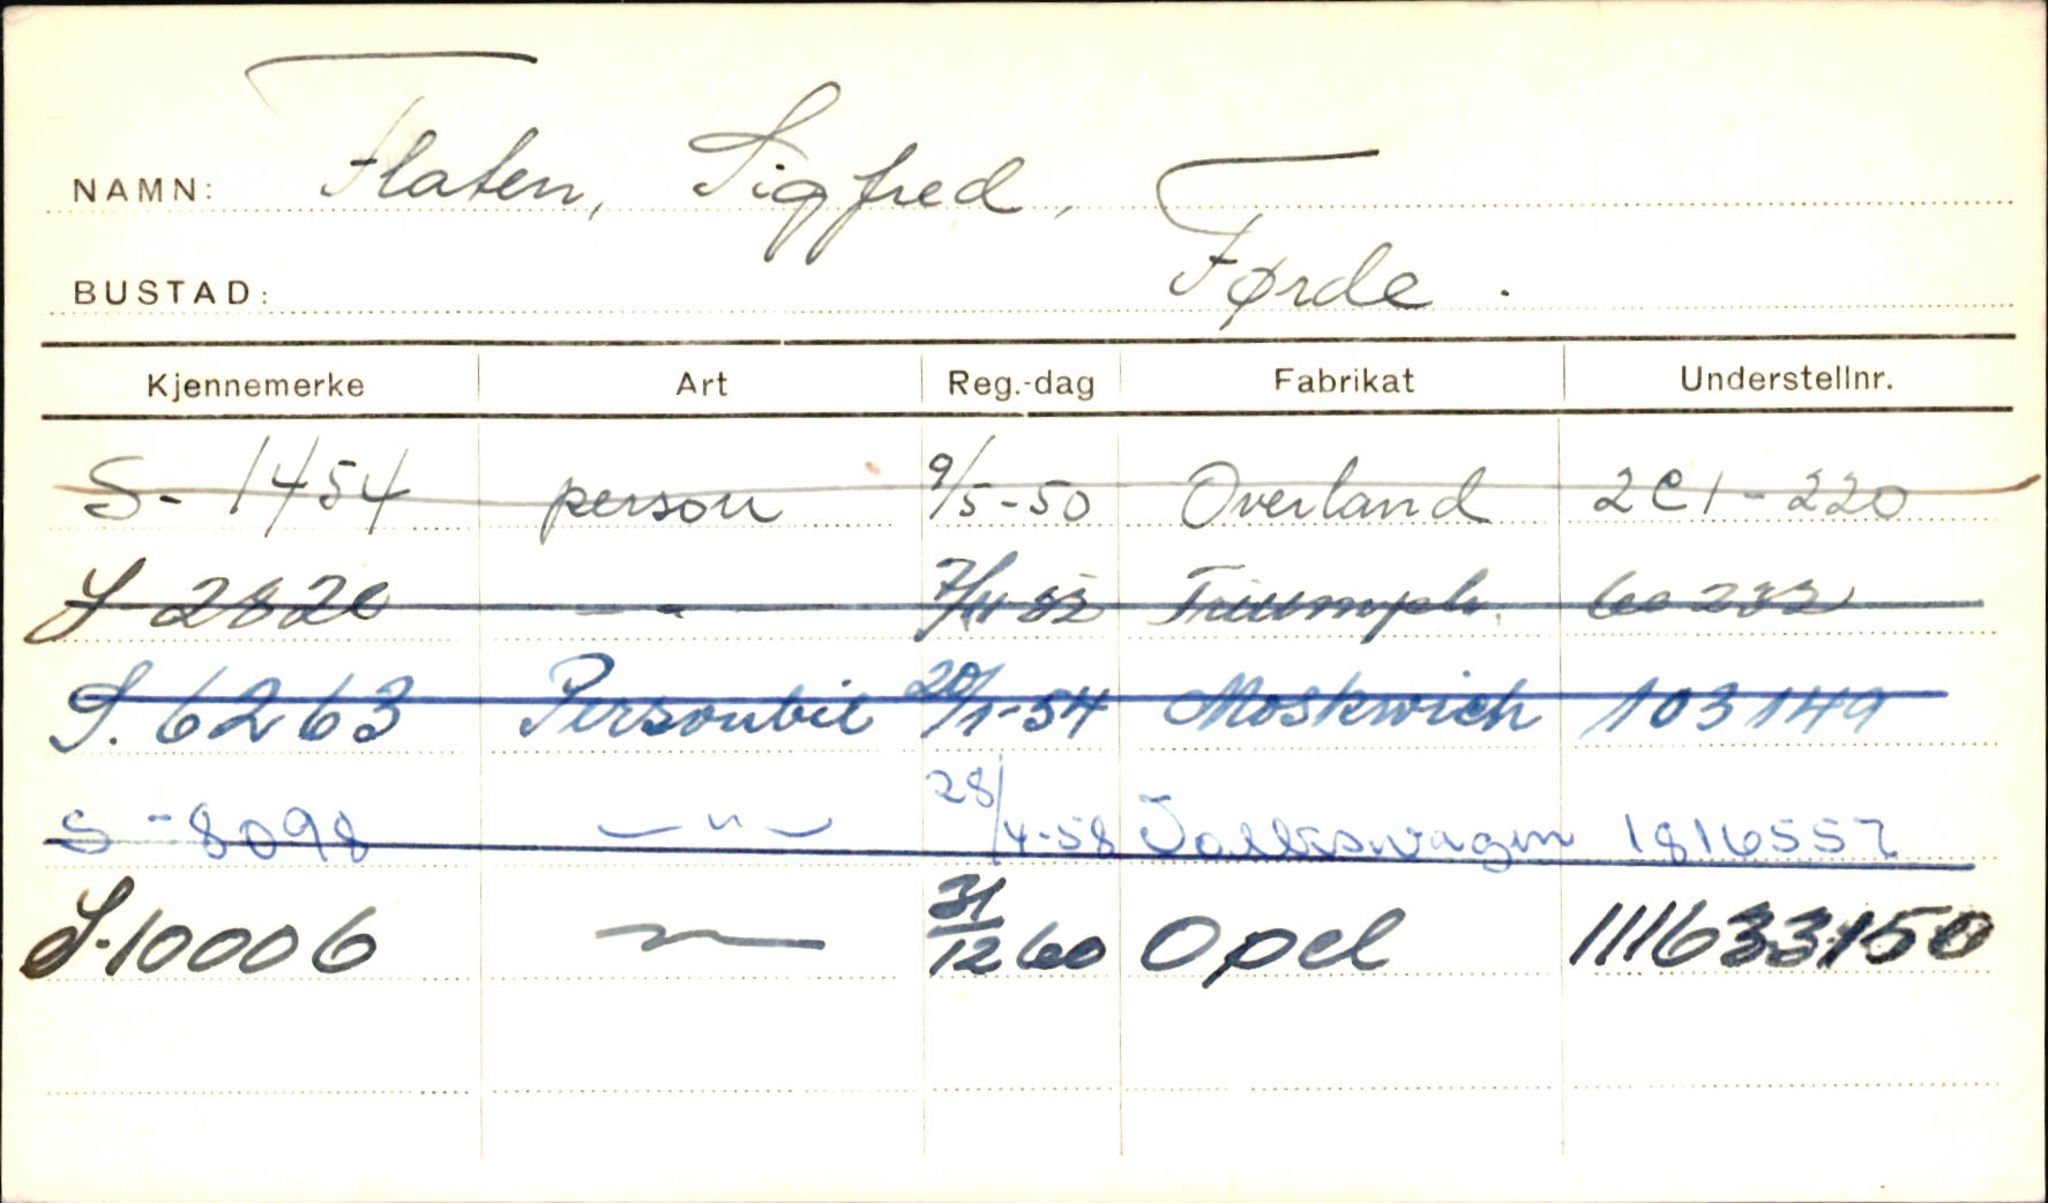 NAMN: Flaten, Sigfred,
BUSTAD: Førde.
Kjennemerke Art Reg.-dag Fabrikat Understellnr.
S-1454 person 9/5-50 Overland 2C1-220
S 2820 -"- Triumph.
S. 6263 Personbil 20/1-54 Moskwich 103149
S-8098 -"- 28/4-58 Volkswagen 1816557
S-10006 31/12 60 Opel 111633150